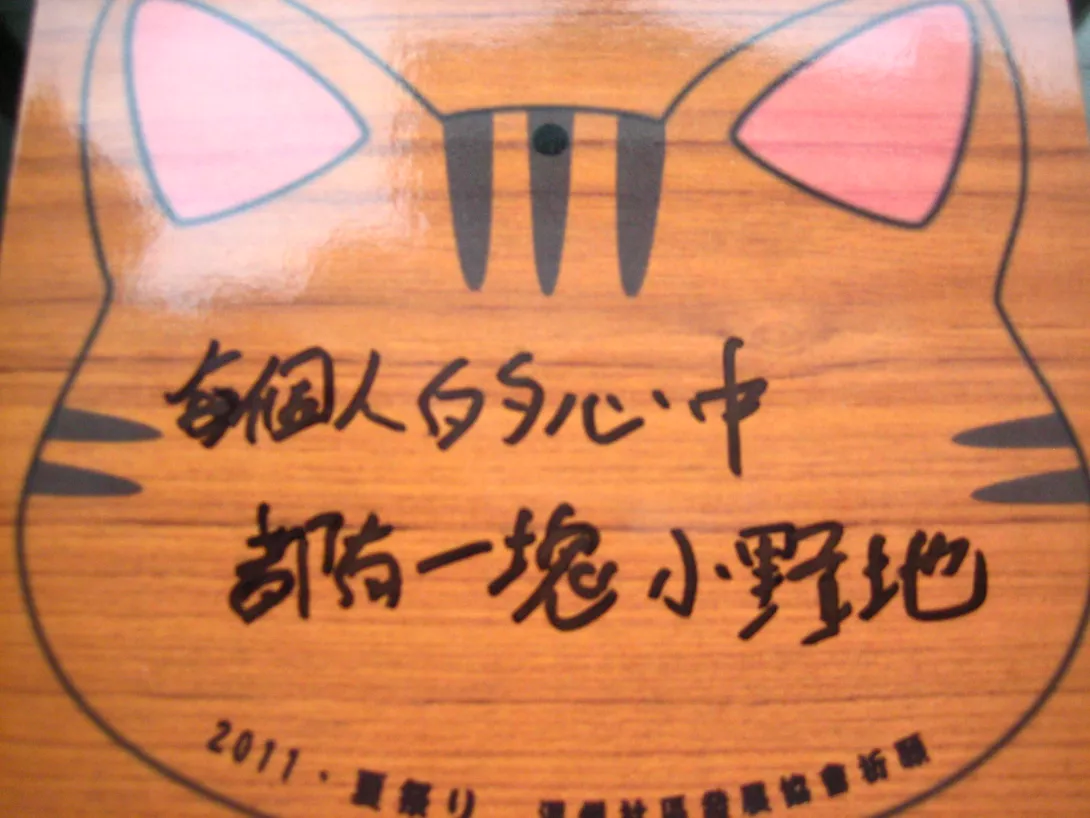 每個人的心中
都有一塊小野地
2011、夏祭り 社區發展協會祈願